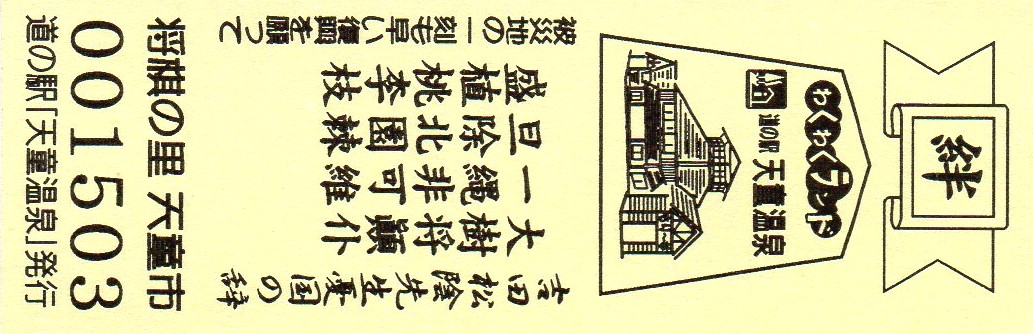 絆
わくわくランド
道の駅 天童温泉
吉田松陰先生憂国の辞
大樹将顚仆
一縄非可維
旦除北園棘
盛植桃李枝
被災地の一刻も早い復興を願って
将棋の里 天童市
001503
道の駅「天童温泉」発行